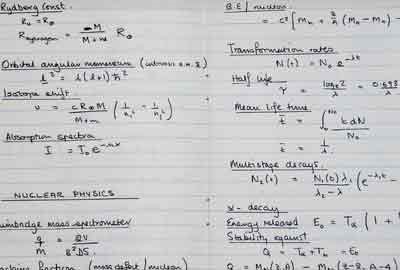 Rydberg Const.
R₀ = R∞
R hydrogen = M / M+m R∞
Orbital angular momentum (
l² = l(l+1)ħ²
Isotope shift.
ν = cR∞M / M+m (1/n₁² - 1/n₂²)
Absorption spectra
I = I₀e
NUCLEAR PHYSICS
mass spectrometer
q/m =
fraction (mass defect / nucleon)
B.E / nucleon
= c² [Mₙ + (Mₙ - Mₙ) -
Transformation rates
N(t) = N₀ e^-λt
Half life
τ = logₑ2 / λ = 0.693
Mean life time
t̄ = ∫ t dN / N₀
t̄ = 1/λ
Multistage decays.
N₂(t) = N₁(0) λ₁ / λ₂ - λ₁ (e^-λ₁t -
α - decay
Energy released E₀ = Tα (1 +
Stability against
Q = Tα + Tₕ = E₀